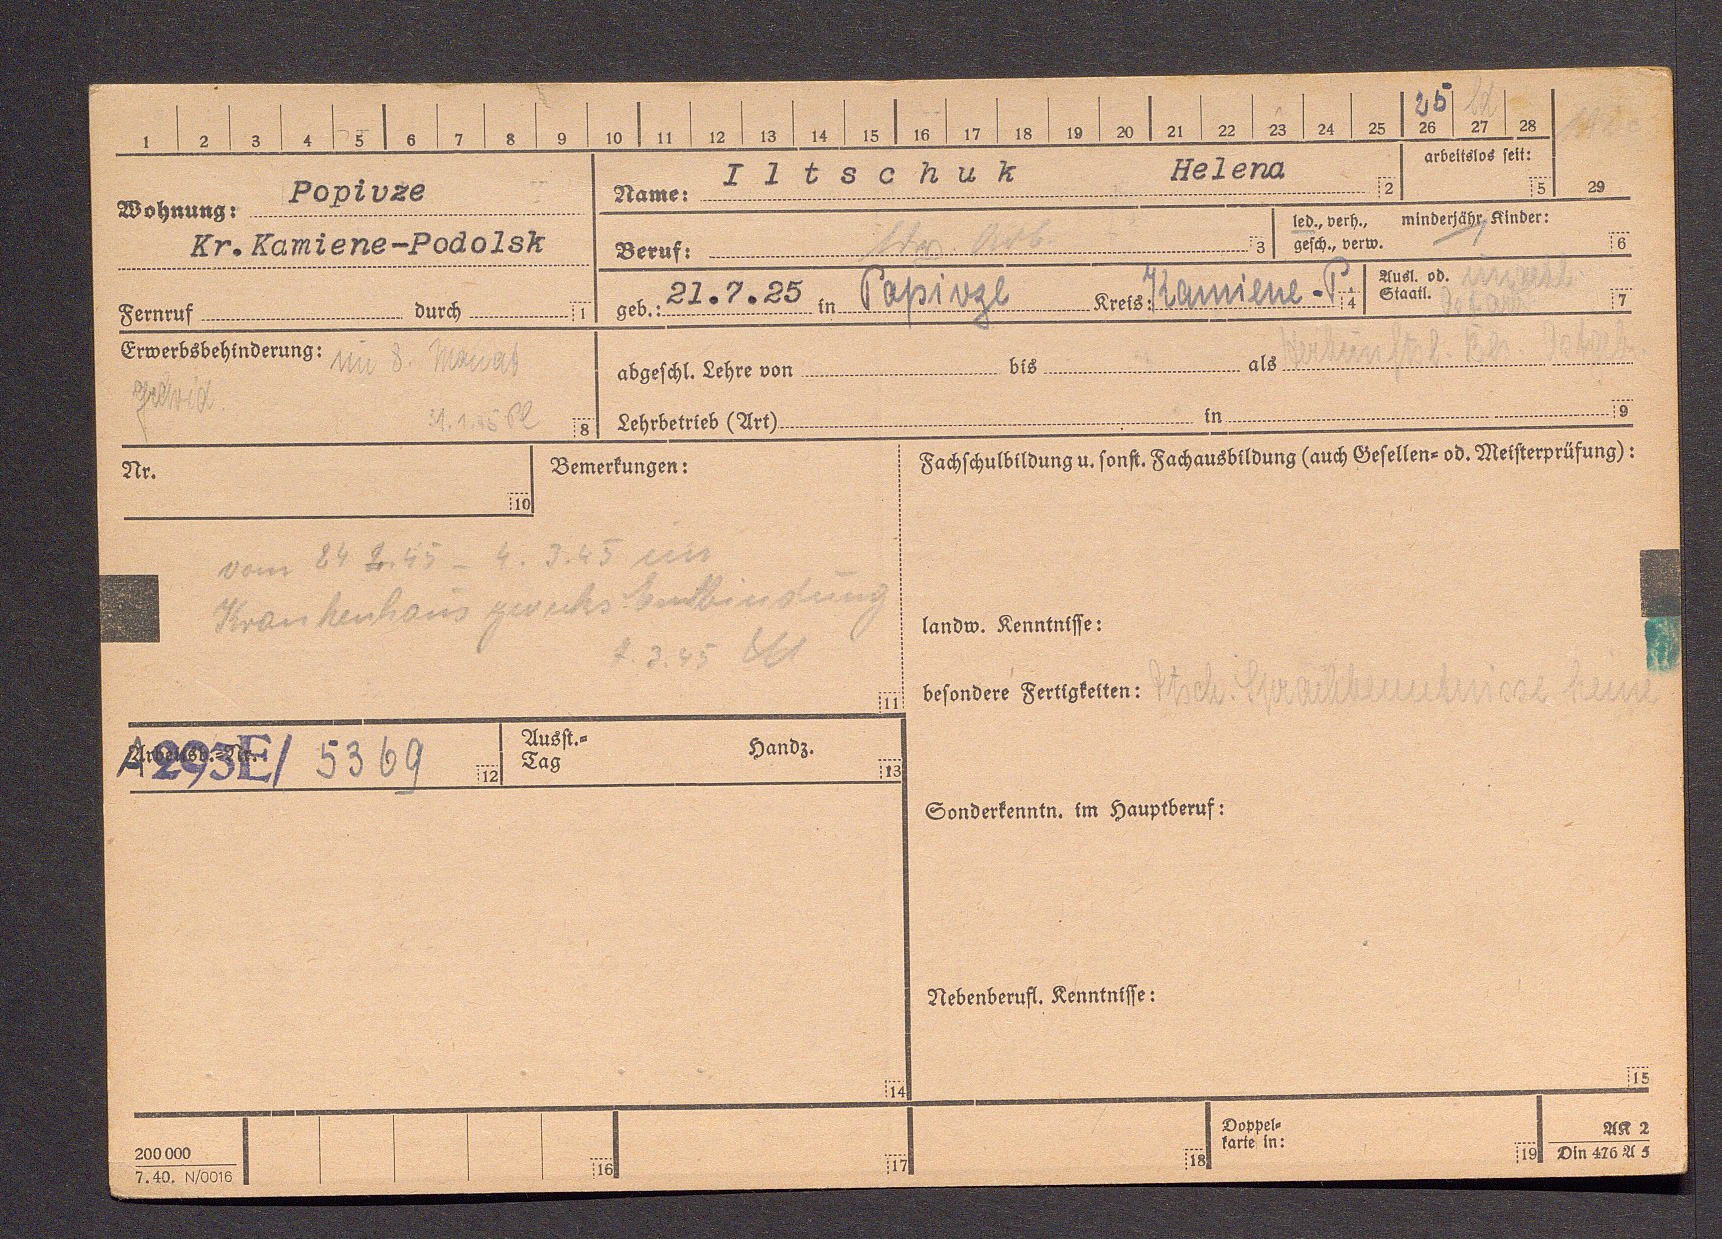 1 2 3 4 5 6 7 8 9 10 11 12 13 14 15 16 17 18 19 20 21 22 23 24 25 26 27 28 29
25
Wohnung: Popivze
Kr. Kamiene-Podolsk
Fernruf durch 1
Name: Iltschuk Helena 2
arbeitslos seit: 5
Beruf: 3
led., verh., gesch., verw.
minderjähr. Kinder: 6
geb.: 21.7.25 in Papivze Kreis: Kamiene-P. 4
Ausl. od. Staatl. 7
Erwerbsbehinderung: im 8. Monat
31.1.45 8
abgeschl. Lehre von bis als
Lehrbetrieb (Art) in 9
Nr. 10
Bemerkungen:
vom 24 2.45 - 4.3.45 im
Krankenhaus zwecks Entbindung
3.45
11
Fachschulbildung u. sonst. Fachausbildung (auch Gesellen- od. Meisterprüfung):
landw. Kenntnisse:
besondere Fertigkeiten: Dtsch. Sprachkenntnisse keine
Arbeitsb.-Nr. A 293E/ 5369 12
Ausst.-Tag Handz. 13
Sonderkenntn. im Hauptberuf:
Nebenberufl. Kenntnisse:
14 15
200 000
7.40. N/0016
16 17 18
Doppel-
karte in: 19
AK 2
Din 476 A 5